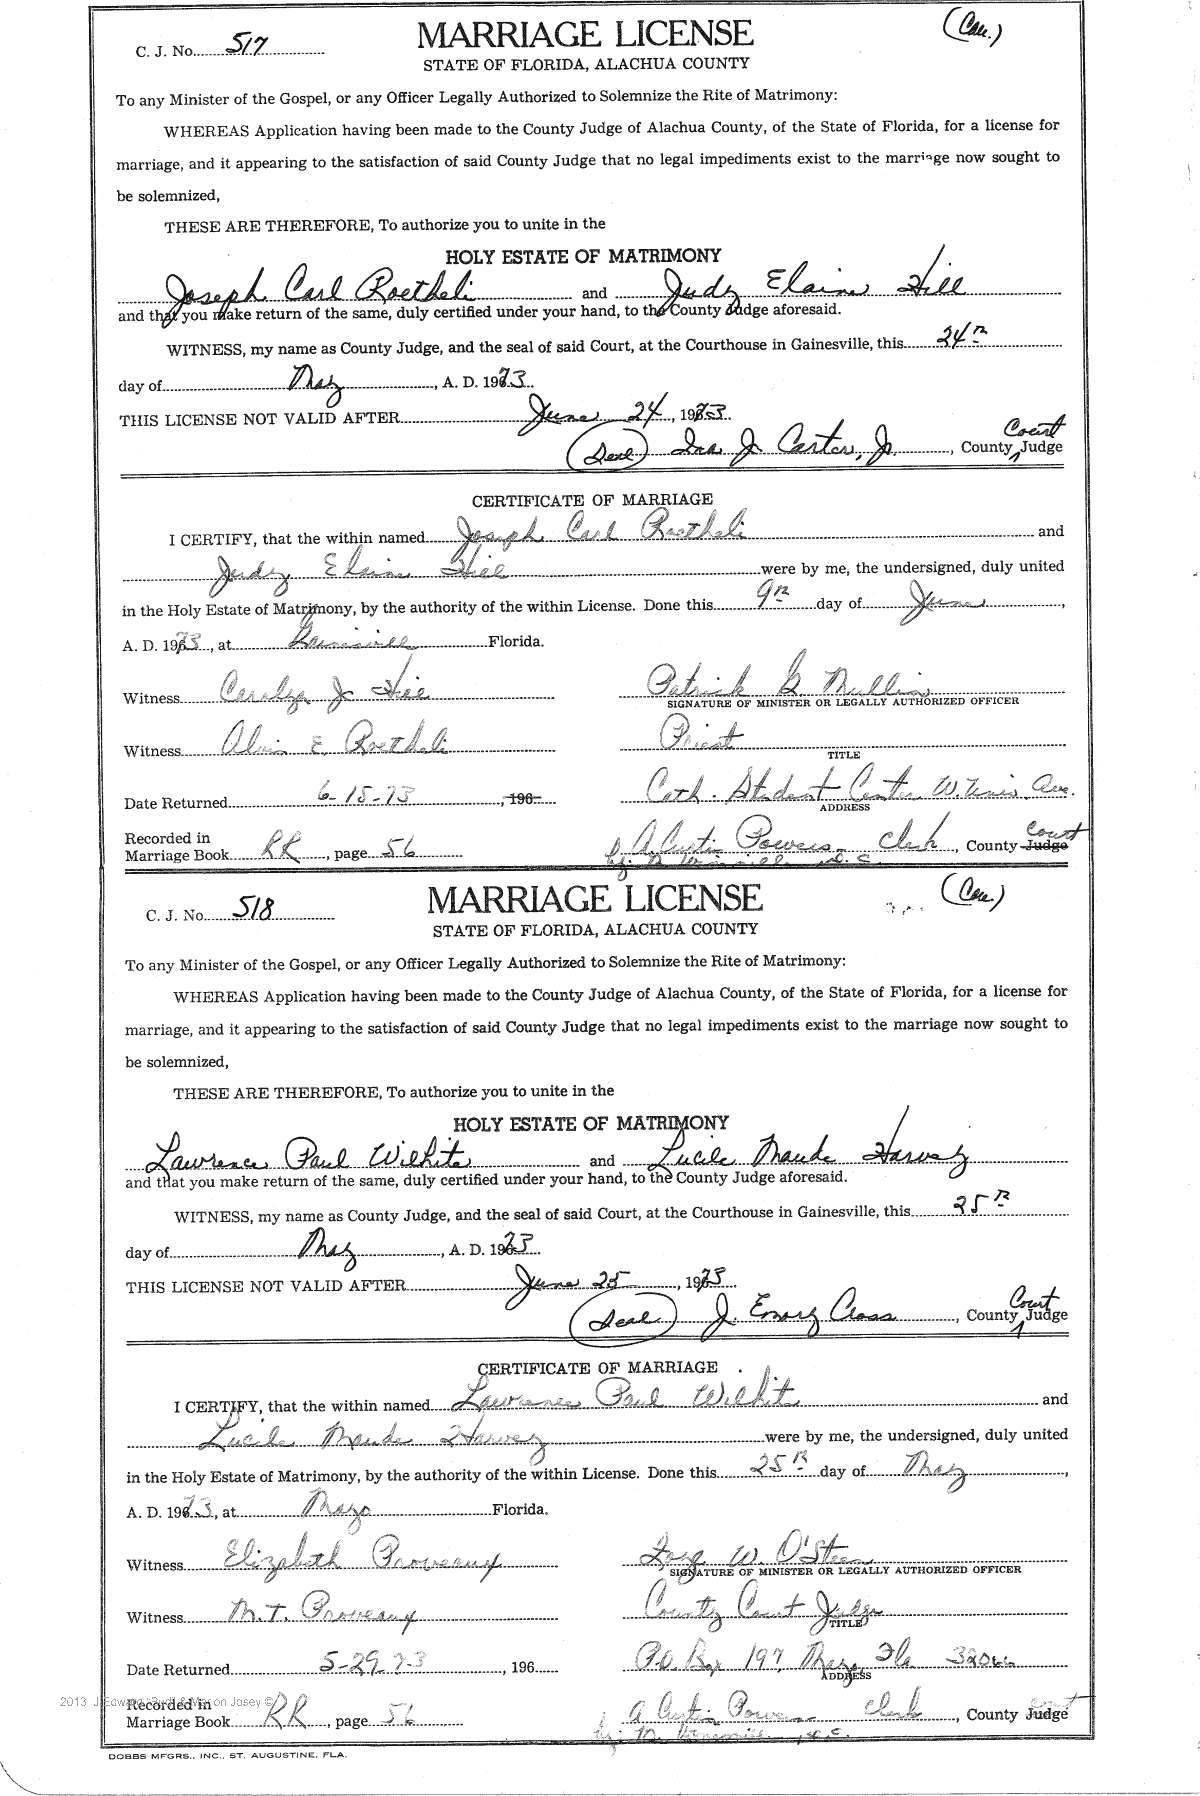 C. J. No. 517
MARRIAGE LICENSE
(Cau.)
STATE OF FLORIDA, ALACHUA COUNTY
To any Minister of the Gospel, or any Officer Legally Authorized to Solemnize the Rite of Matrimony:
WHEREAS Application having been made to the County Judge of Alachua County, of the State of Florida, for a license for
marriage, and it appearing to the satisfaction of said County Judge that no legal impediments exist to the marriage now sought to
be solemnized,
THESE ARE THEREFORE, To authorize you to unite in the
HOLY ESTATE OF MATRIMONY
Joseph Carl Roetheli and Judy Elaine Hill
and that you make return of the same, duly certified under your hand, to the County Judge aforesaid.
WITNESS, my name as County Judge, and the seal of said Court, at the Courthouse in Gainesville, this 24th
day of May, A. D. 1973
THIS LICENSE NOT VALID AFTER June 24, 1973
(Seal) Ira J. Carter, Jr., County Court Judge
CERTIFICATE OF MARRIAGE
I CERTIFY, that the within named Joseph Carl Roetheli and
Judy Elaine Hill were by me, the undersigned, duly united
in the Holy Estate of Matrimony, by the authority of the within License. Done this 9th day of June,
A. D. 1973, at Gainesville Florida.
Witness Carolyn J. Hill
Patrick G. Mullin
SIGNATURE OF MINISTER OR LEGALLY AUTHORIZED OFFICER
Witness Alvin E. Roetheli
Priest
TITLE
Date Returned 6-15-73, 196
Cath. Student Center W. Univ. Ave.
ADDRESS
Recorded in
Marriage Book RR, page 56
A. Curtis Powers clerk, County Judge Court
by
C. J. No. 518
MARRIAGE LICENSE
(Cau.)
STATE OF FLORIDA, ALACHUA COUNTY
To any Minister of the Gospel, or any Officer Legally Authorized to Solemnize the Rite of Matrimony:
WHEREAS Application having been made to the County Judge of Alachua County, of the State of Florida, for a license for
marriage, and it appearing to the satisfaction of said County Judge that no legal impediments exist to the marriage now sought to
be solemnized,
THESE ARE THEREFORE, To authorize you to unite in the
HOLY ESTATE OF MATRIMONY
Lawrence Paul Wilhite and Lucile Maude Harvey
and that you make return of the same, duly certified under your hand, to the County Judge aforesaid.
WITNESS, my name as County Judge, and the seal of said Court, at the Courthouse in Gainesville, this 25th
day of May, A. D. 1973
THIS LICENSE NOT VALID AFTER June 25, 1973
(Seal) J. Emory Cross, County Court Judge
CERTIFICATE OF MARRIAGE
I CERTIFY, that the within named Lawrence Paul Wilhite and
Lucile Maude Harvey were by me, the undersigned, duly united
in the Holy Estate of Matrimony, by the authority of the within License. Done this 25th day of May,
A. D. 1973, at Mayo Florida.
Witness Elizabeth Proveaux
W. O'Steen
SIGNATURE OF MINISTER OR LEGALLY AUTHORIZED OFFICER
Witness M. T. Proveaux
County Court Judge
TITLE
Date Returned 5-29-73, 196
P.O. Box 197, Mayo Fla 32066
ADDRESS
Recorded in
Marriage Book RR, page 56
A Curtis Powers clerk, County Judge Court
by M.
DOBBS MFGRS., INC., ST. AUGUSTINE, FLA.